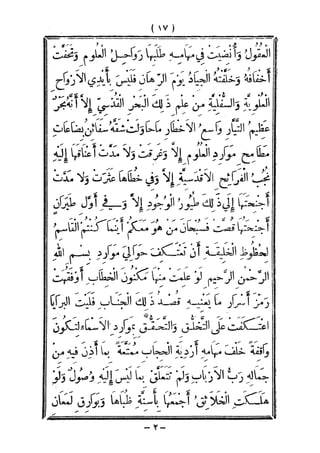 ( ١٧ )
العقول وأُنضيت في مهامه طلبها رواحل العلوم وتحفّت
أخفافه وخلّفته الجياد يوم الرهان فليس بأيدي الأرواح
العلويّة والسفليّة من علم ذلك البحر القدسيّ إلّا أنّه بحر
عظيم التيّار واسع الأخطار ما حاولت شقّه سفائن بضاعات
مطامح موارد العلوم إلّا وغرقت ولا مدّت أعناقها إليه
نجب القرائح الأقدسيّة إلّا وفي خطاها عثرت ولا مدّت
أجنحتها إلى ذلك طيور الوجود إلّا وفي أوّل طيران
أجنحتها قصّت فسبحان من هو معكم أينما كنتم القاسم
لحظوظ الخليقة أن تعتكف حوالي موارد بسم الله
الرحمن الرحيم لو علمت منها مكنون الخطاب أو فقهت
رمز أسرار ما يعنيه قصد ذلك الجناب فليت البرايا
اعتكفت على التخلّق والتحقّق بموارد الأسماء لتكون
واقفة خلف مهامه أردية الحجاب ممتّعة بما أذن فيه من
جماله ربّ الأرباب ولم تتعلّق بما ليس إليه وصول ولو
هلكت الخلائق أجمعها بأسنّة ظباها وبوارق لمعان
- ٢ -